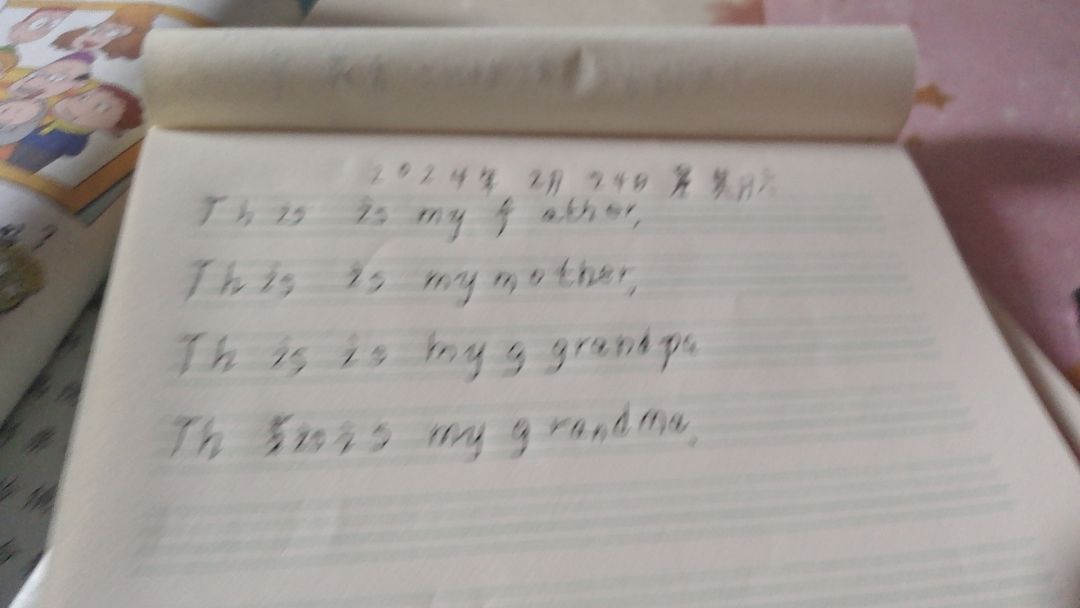 2024年 2月 24日 星期六
Th is is my f ather,
This is my mother,
Th is is my g grandpa
Th is is my grandma,